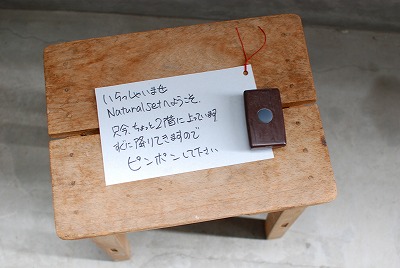 いらっしゃいませ
Natural setへようこそ.
只今、ちょっと2階に上っています
すぐに降りてきますので
ピンポンして下さい